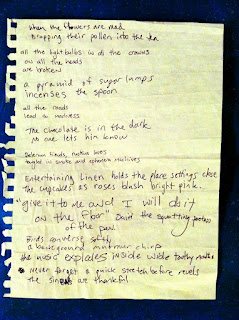 when the flowers are mad
Dropping their pollen into the tea
all the lightbulbs in all the crowns
on all the heads
are broken
a pyramid of sugar lumps
incenses the spoon
all the roads
lead to madness
The chocolate is in the dark
no one lets him know
tangled in smoke and ephemera
Entertaining Linen holds the place settings close
the cupcakes as roses blush bright pink.
"give it to me and I will do it
on the floor" David the squatting
of the
Birds converse softly
a background chirp
the music explodes inside wide toothy mouths
never forget a quick stretch before revels
the are thankful